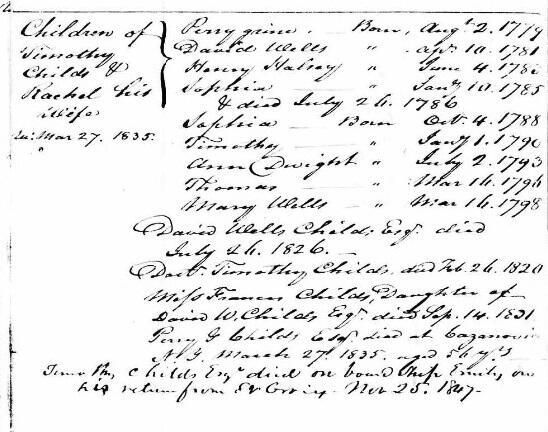 Children of
Timothy
Childs &
Rachel his
Wife
Mar 27. 1835.
Perry grine. Born, Augt 2. 1779
David Wells " Apr. 10. 1781
Henry Halsey " June 4. 178
Sophia — " Jany 10. 1785
& died July 26. 1786
Sophia — Born Oct. 4. 1788
Timothy — " Jany 1. 1790
Ann Dwight " July 2. 1793
Thomas — " Mar 16. 1796
Mary Wells — " Mar 16. 1798
David Wells Childs, Esqr. died
July 26. 1826. —
Doctr. Timothy Childs. died Feb. 26. 1820
Miss Frances Childs, Daughter of
David W. Childs Esqr. died Sep. 14. 1831
Perry G Childs Esqr. died at Cazanovia
N.Y. March 27th. 1835. aged 56 y's
Timothy Childs Esqr died on board Ship Emily, on
his return from Nov 25. 1847.